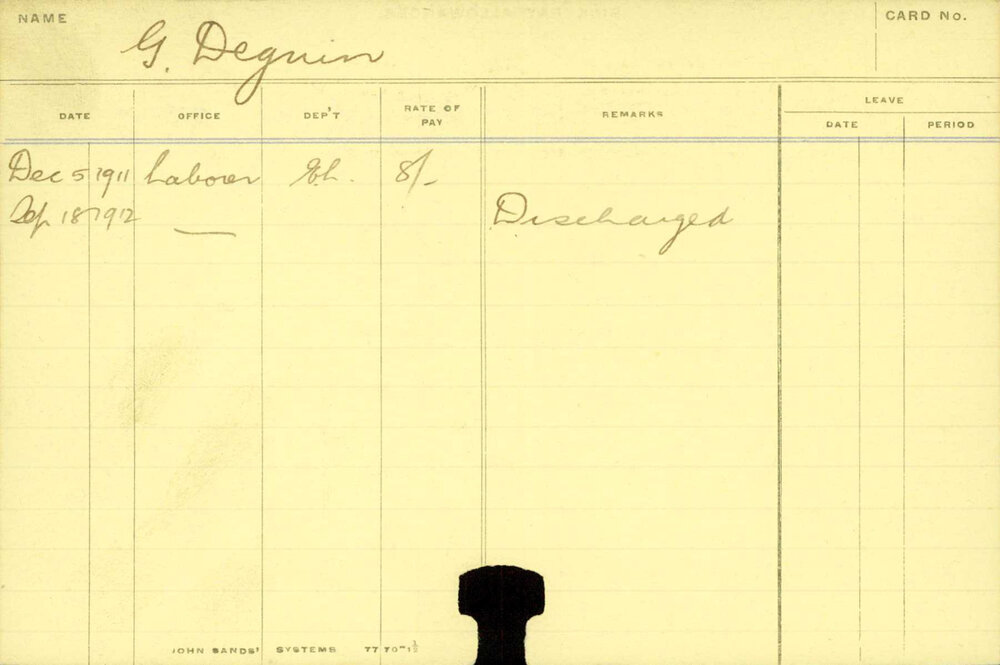 NAME
G. Deguin
CARD No.
DATE OFFICE DEP'T RATE OF PAY REMARKS LEAVE
DATE PERIOD
Dec 5 1911 Laborer 8/-
Sep 18 1912 — Discharged
JOHN SANDS' SYSTEMS